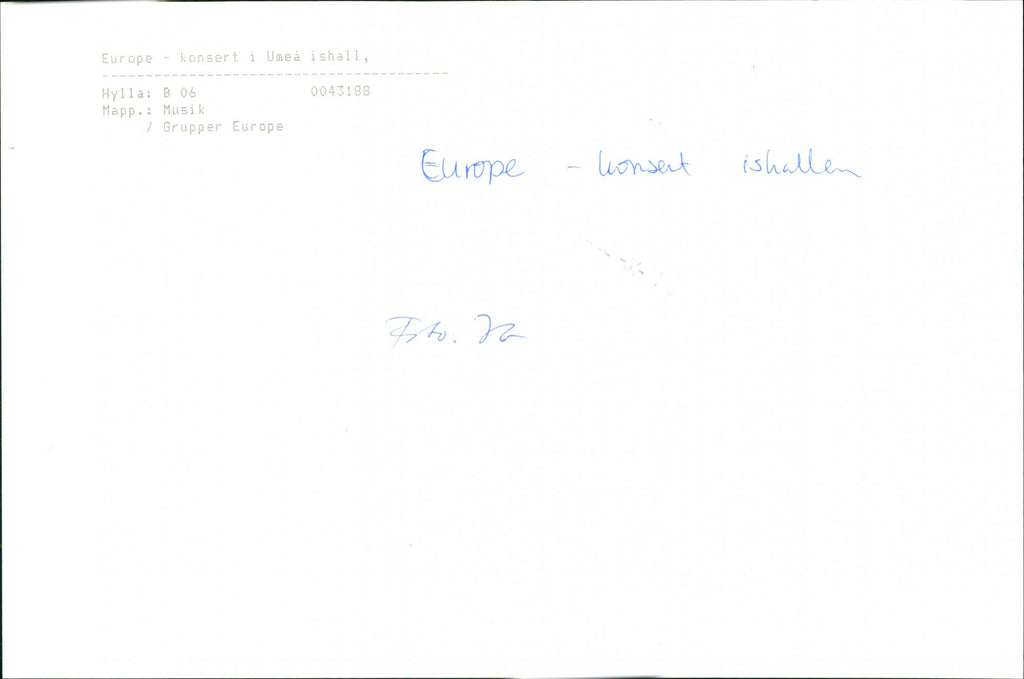 Europe - konsert i Umeå ishall,
----------------------------------------
Hylla: B 06 0043188
Mapp.: Musik
/ Grupper Europe
Europe - konsert ishallen
Foto.